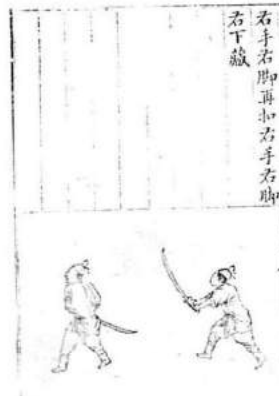 右手右脚再扣右手右脚
右下藏